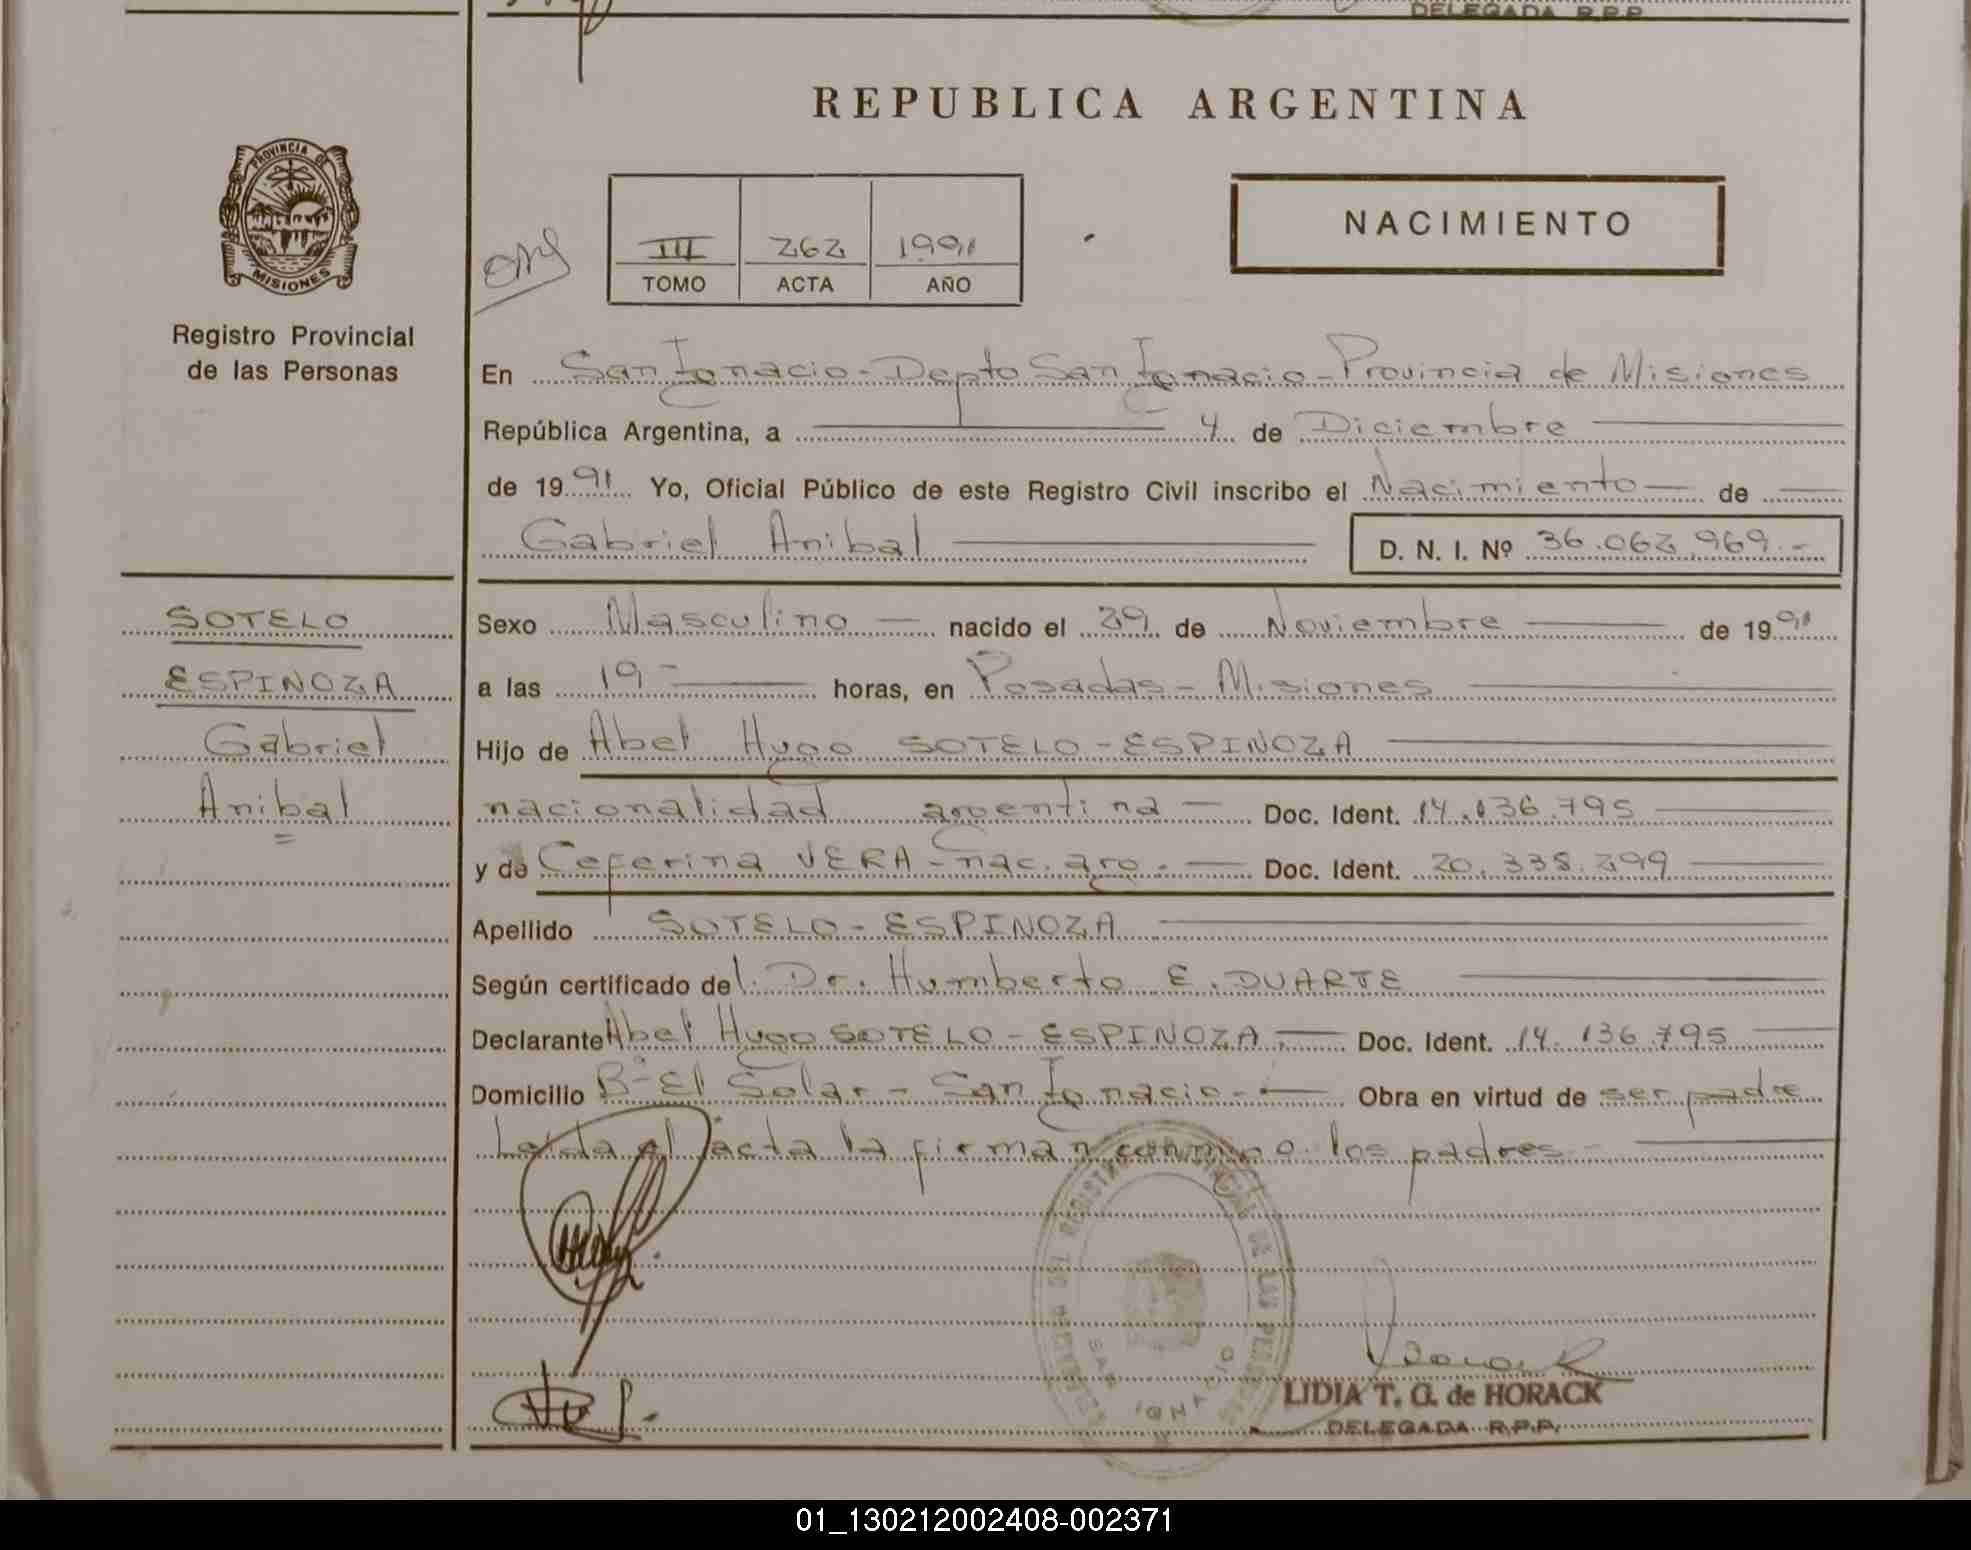 DELEGADA R.P.P.
REPUBLICA ARGENTINA
PROVINCIA DE
MISIONES
Registro Provincial
de las Personas
III 262 1991
TOMO ACTA AÑO
NACIMIENTO
En San Ignacio - Depto San Ignacio - Provincia de Misiones
República Argentina, a 4 de Diciembre
de 1991 Yo, Oficial Público de este Registro Civil inscribo el Nacimiento de
Gabriel Anibal D. N. I. Nº 36.062.969.-
SOTELO
ESPINOZA
Gabriel
Anibal
Sexo Masculino nacido el 29 de Noviembre de 1991
a las 19 horas, en Posadas - Misiones
Hijo de Abel Hugo SOTELO - ESPINOZA
nacionalidad argentina Doc. Ident. 14.136.795
y de Ceferina VERA - nac. arg. Doc. Ident. 20.338.299
Apellido SOTELO - ESPINOZA
Según certificado del Dr. Humberto E. DUARTE
Declarante Abel Hugo SOTELO - ESPINOZA. Doc. Ident. 14.136.795
Domicilio Bº El Solar - San Ignacio - Obra en virtud de ser padre
Leida el acta la firman conmigo los padres -
SAN IGNACIO
LIDIA T. G. de HORACK
DELEGADA R.P.P.
01_130212002408-002371